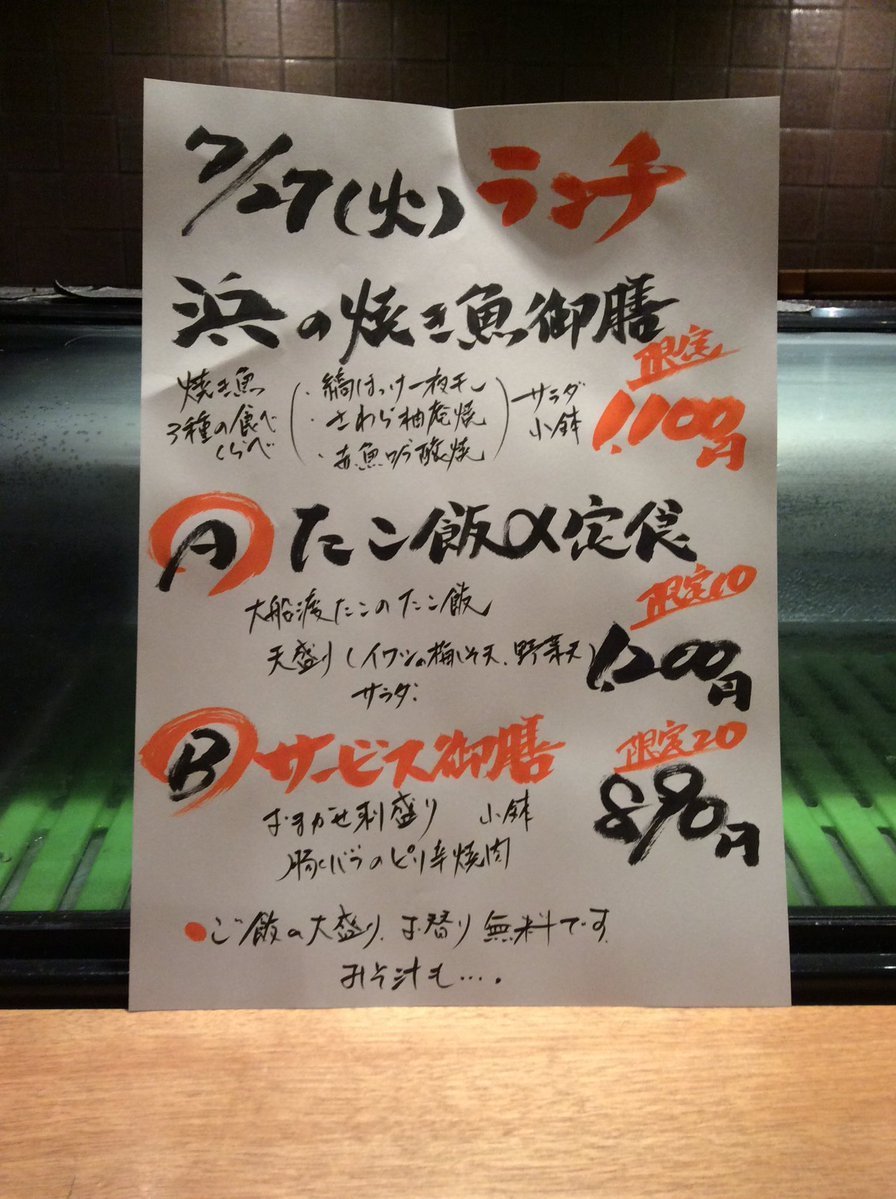 7/27(火)ランチ
浜の焼き魚御膳
限定
1,100円
焼き魚
3種の食べ
くらべ
・縞ほっけ一夜干し
・さわら柚庵焼
・赤魚吟醸焼
サラダ
小鉢
A たこ飯α定食
限定10
1,200円
大船渡たこのたこ飯
天盛り(イワシの梅しそ天、野菜天)
サラダ
B サービス御膳
限定20
890円
おまかせ刺盛り 小鉢
豚バラのピリ辛焼肉
●ご飯の大盛り、お替り無料です
みそ汁も….